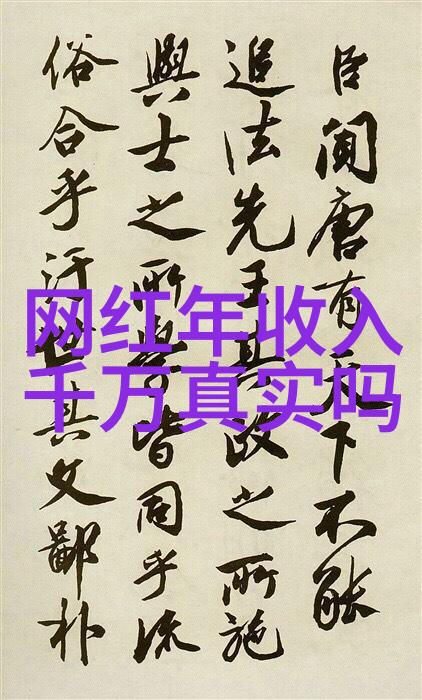 臣聞唐有天下不能
追法先王其政之所施
與士之所學皆同乎流
俗合乎汙世其文鄙朴
网红年收入
千万真实吗